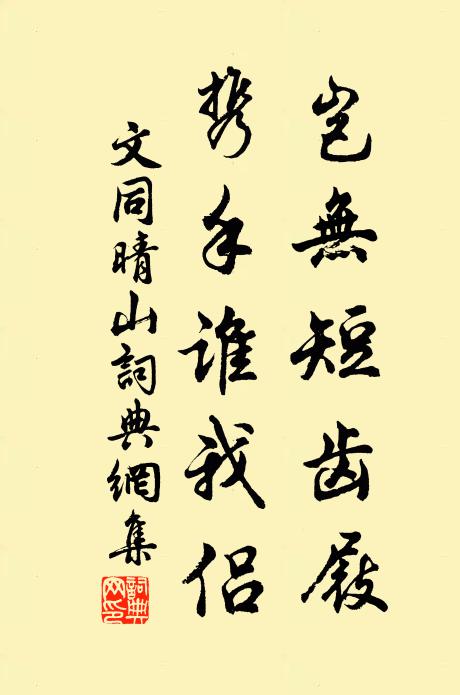 豈無短齒屐
携手誰我侣
文同晴山詞典網集
詞典网印